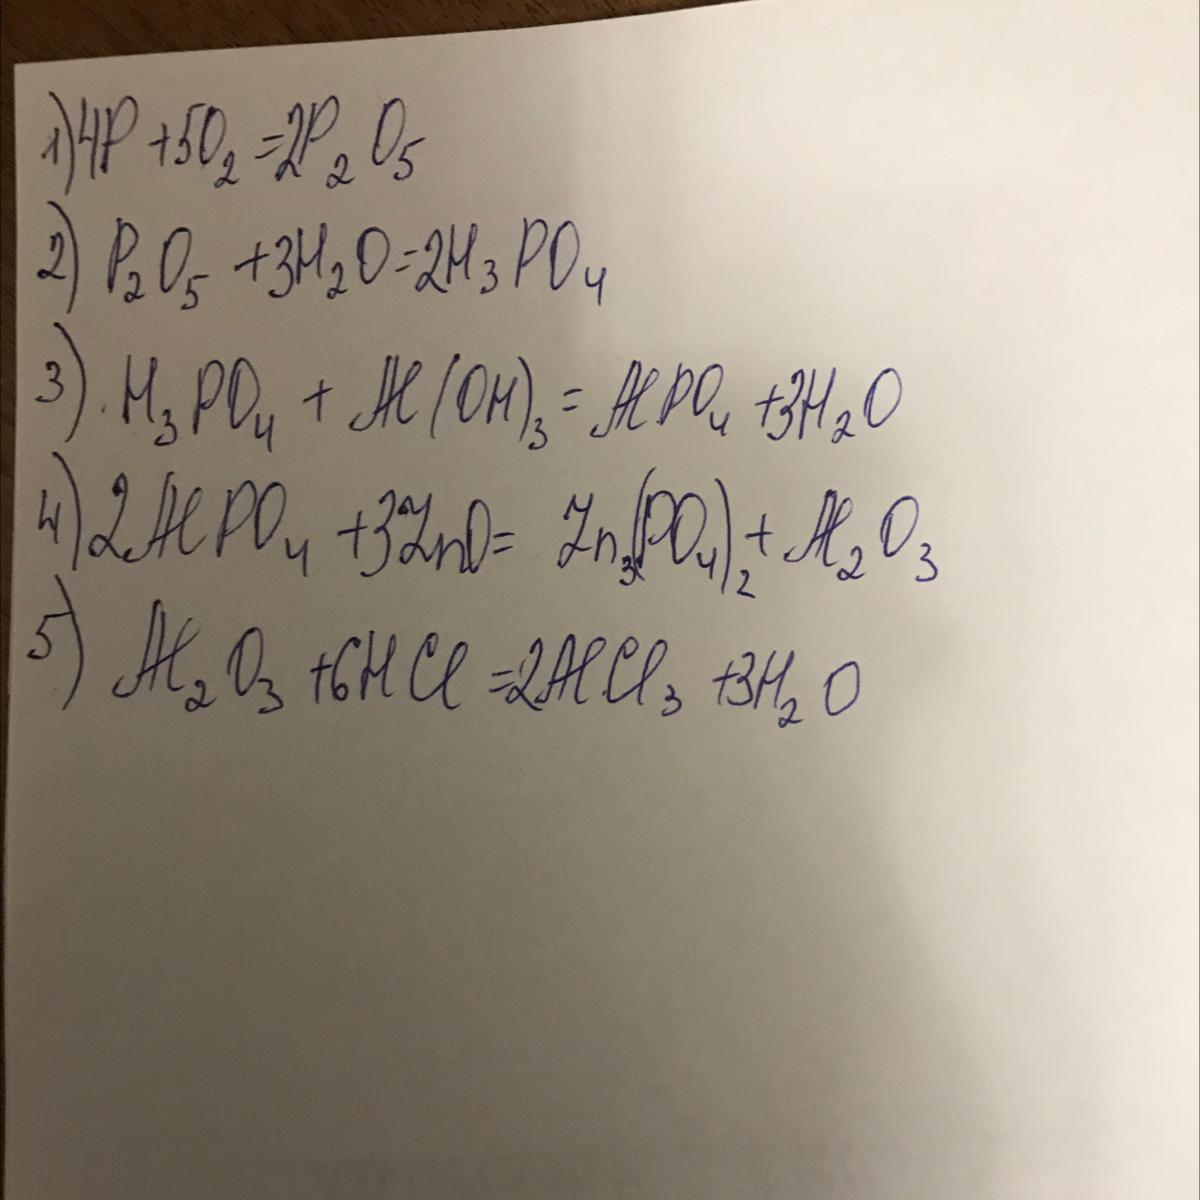 1) 4P + 5O₂ = 2P₂O₅
2) P₂O₅ + 3H₂O = 2H₃PO₄
3) H₃PO₄ + Al(OH)₃ = AlPO₄ + 3H₂O
4) 2AlPO₄ + 3ZnO = Zn₃(PO₄)₂ + Al₂O₃
5) Al₂O₃ + 6HCl = 2AlCl₃ + 3H₂O